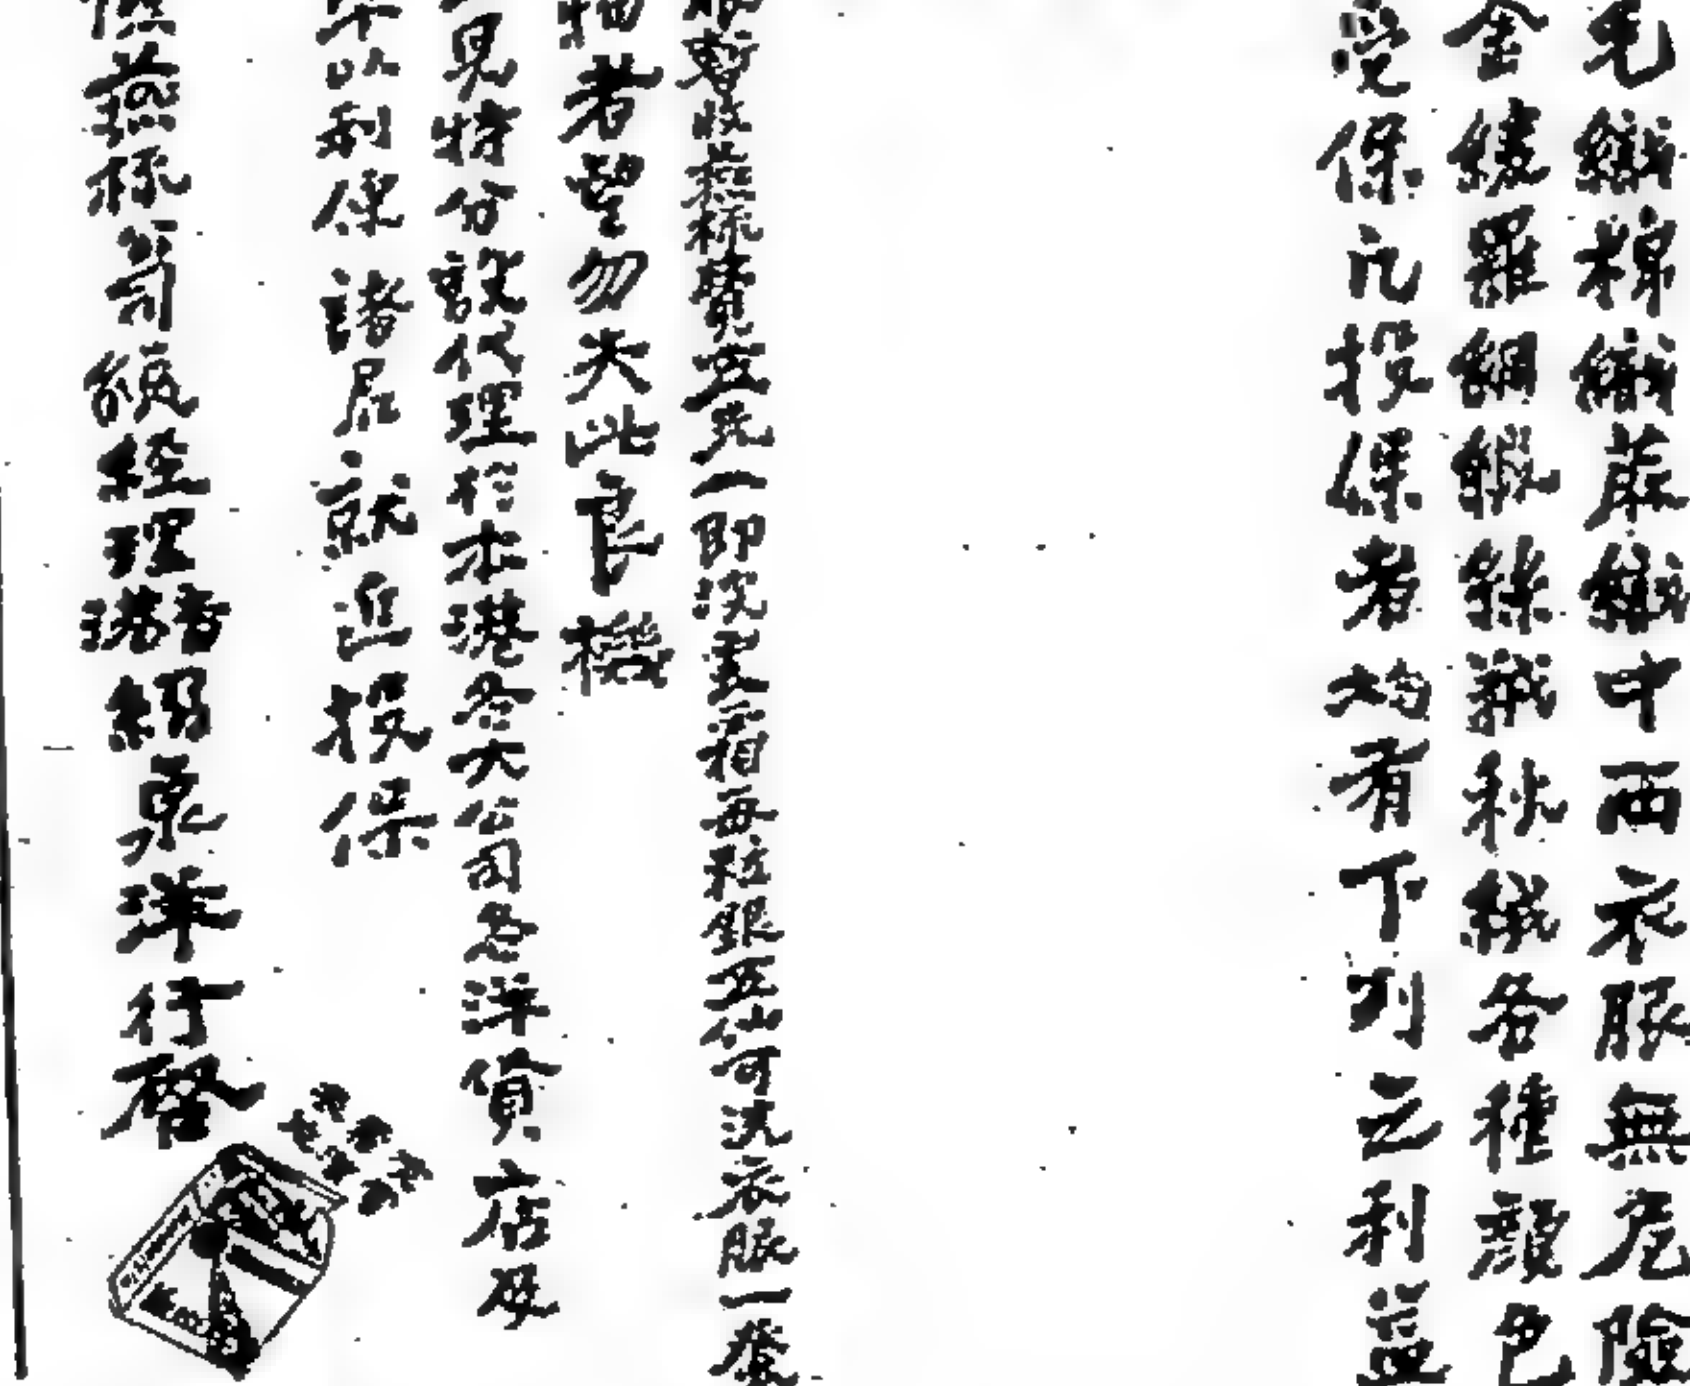 毛織棉織蔴織中西衣服無危險
金綫羅網緞絲絨秋絨各種顏色
受保凡投保者均有下列之利益
服暫收燕梳費壹元一即浣雲箱每粒銀五仙可洗衣服一套
者望勿失此良機
見特分設代理於本港各大公司各洋貨店及
以利保 諸君就近投保
燕梳 司 總經理 瑞士 紹泉洋行啓